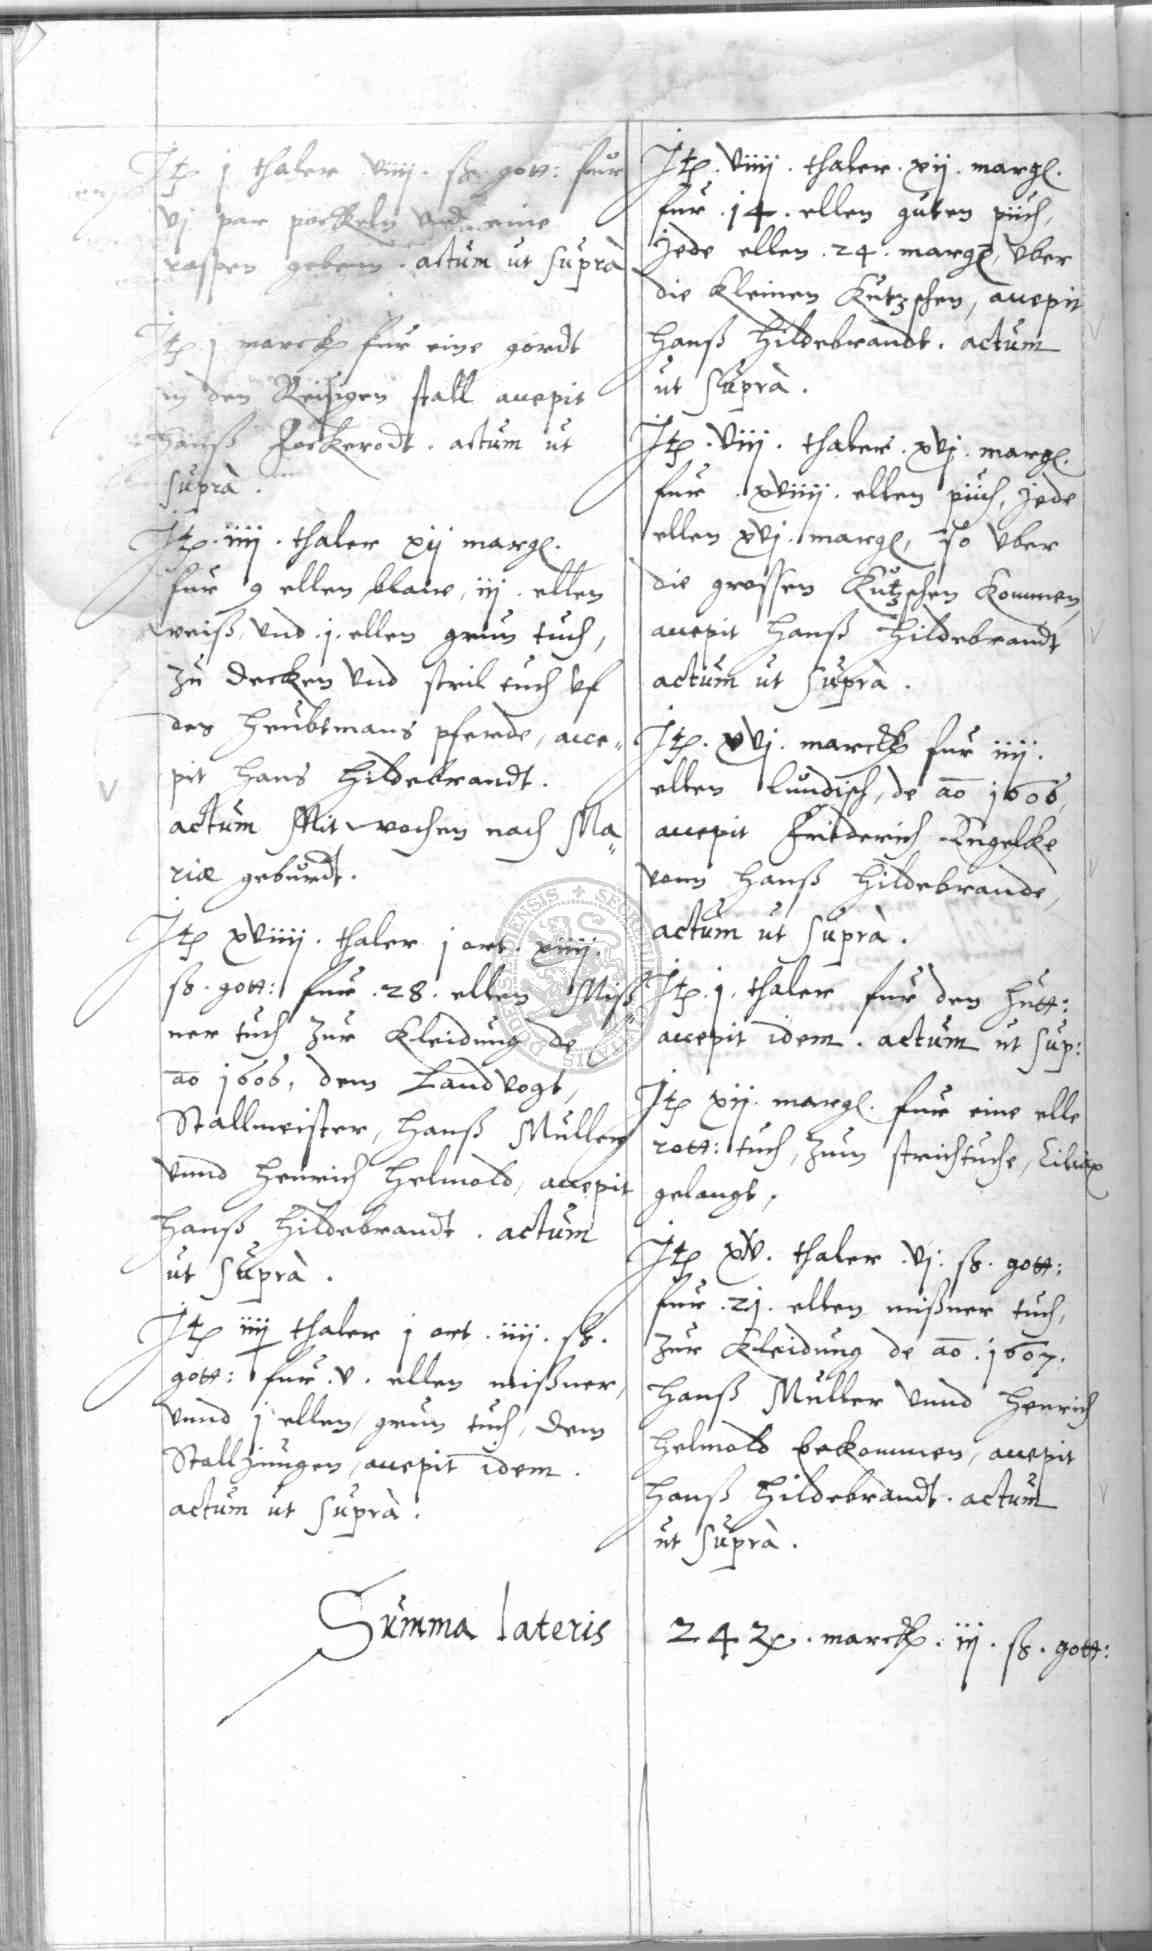 Itẽ j thaler viiij. ß. gott: fur
vj par pöckeln und eine
raspen gebenn. actum ut suprà
Itẽ j marck fur eine gördt
in den Reisigen stall accepit
Hanß Fockerodt. actum ut
suprà.
Itẽ. iiij. thaler xij margl.
fur 9 ellen blaw, iij. ellen
weiß, und .j. ellen grun tuch,
zu decken und stril tuch uf
des Heubtmans pferde, acce„
pit Hans Hildebrandt.
actum Mitwochen nach Ma„
riæ geburdt.
Itẽ xviiij. thaler j ort. xiiij.
ß. gott: fur .28. ellen Miß„
ner tuch zur Kleidung de
aō 1606, dem Landvogt,
Stallmeister, Hanß Mullern
unnd Henrich Helmold, accepit
Hanß Hildebrandt. actum
ut suprà.
Itẽ iiij thaler j ort. iiij. ß.
gott: fur .v. ellen mißner,
unnd j ellen grun tuch, dem
Stalljungen, accepit idem.
actum ut suprà.
Itẽ. viiij. thaler. xij. margl.
fur .14. ellen guten püch,
jede ellen .24. margl, uber
die kleinen Kutzschen, accepit
Hanß Hildebrandt. actum
ut suprà.
Itẽ. viij. thaler. xvj. margl.
fur .xviiij. ellen püch, jede
ellen xvj. margl, so uber
die grossen Kutzschen kommen,
accepit Hanß Hildebrandt
actum ut suprà.
Itẽ. xvj. marck fur iiij.
ellen Lundisch, de aō 1606,
accepit Friderich Engelke
vonn Hanß Hildebrande,
actum ut suprà.
Itẽ. j. thaler fur den hutt:
accepit idem. actum ut sup:
Itẽ xij. margl. fur eine elle
rott: tuch, zum strichtuche,
gelangt,
Itẽ xv. thaler .vj: ß. gott:
fur .21. ellen mißner tuch,
zur Kleidung de aō .1607.
Hanß Muller unnd Henrich
Helmold bekommen, accepit
Hanß Hildebrandt. actum
ut suprà.
Summa lateris 243. marck. iij. ß. gott: